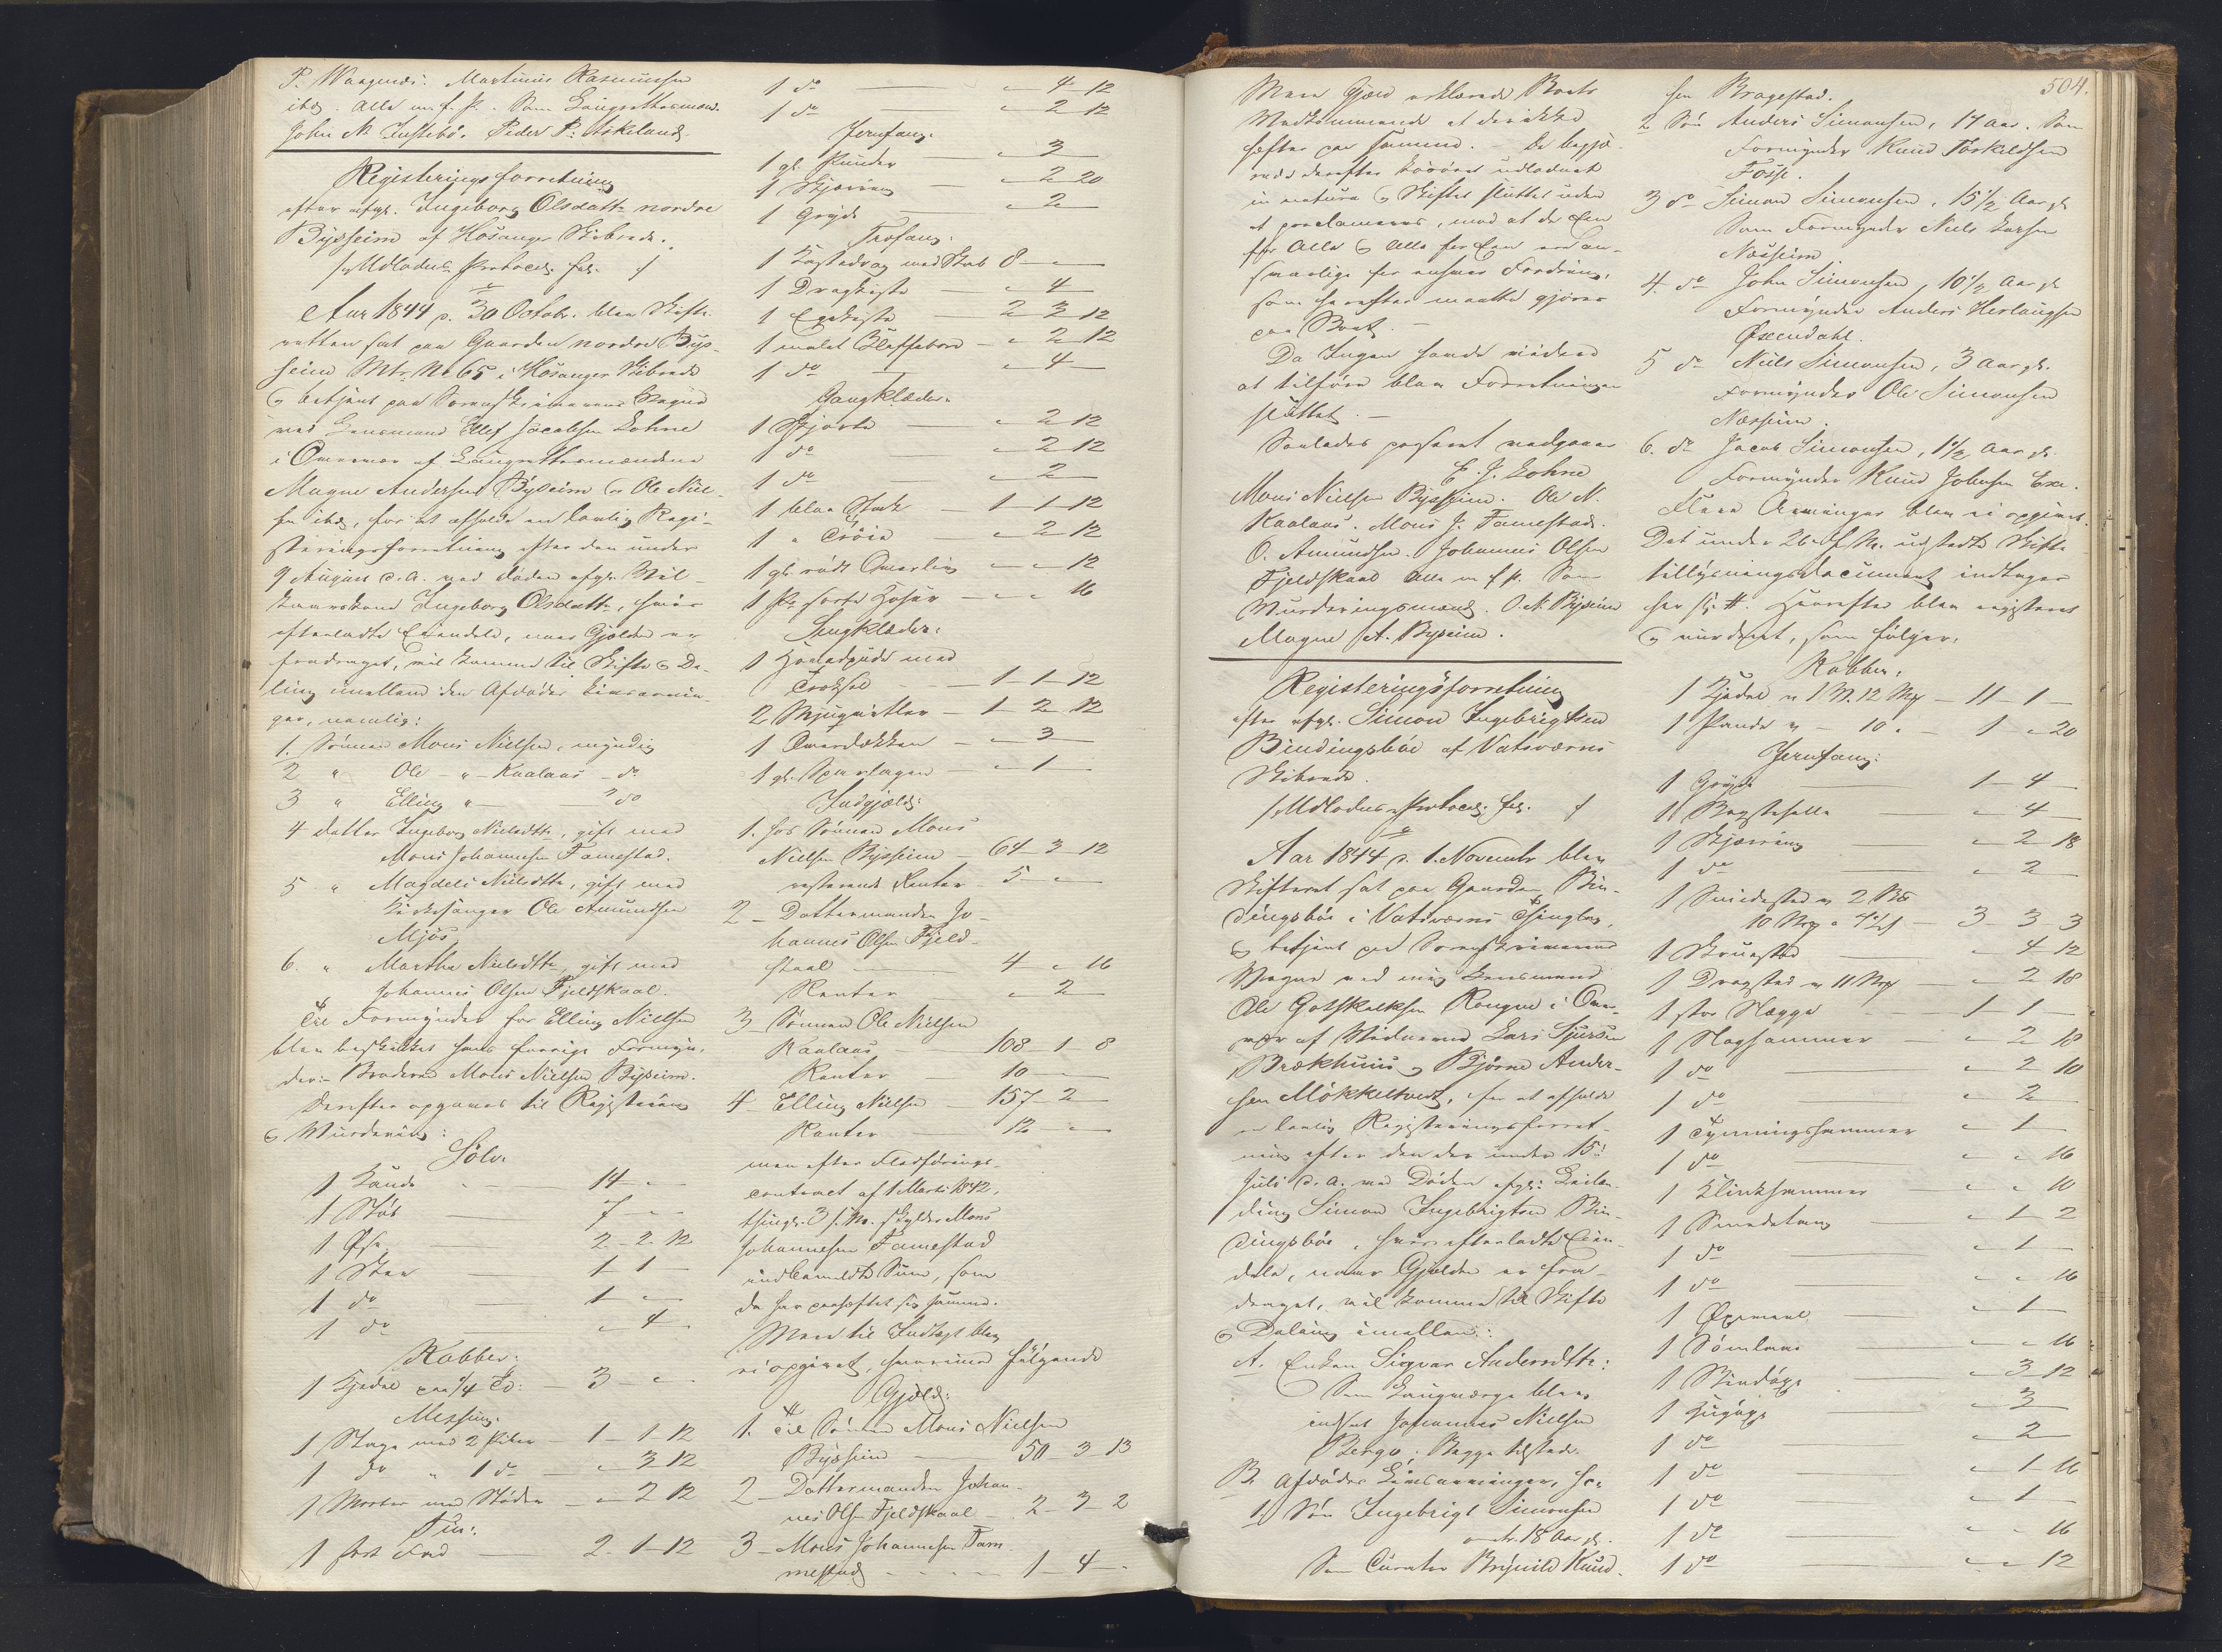 P. Waagenæs. Martinus Rasmussen
ibd. Alle m. f. P. Som Laugrettesmænd.
John N. Indstebø. Peder P. Askeland.
Registeringsforretning
efter afgl. Ingeborg Olsdattr nordre
Bysseim af Hosanger Skibrede.
/: Udlodn. Protocol. fol. /
Aar 1844 d. 30 Octobr. blev Skifte-
retten sat paa Gaarden nordre Bys-
seim Mtr. No 65 i Hosanger Skibrede
og betjent paa Sorenskriverens Vegne
ved Lensmand Ellef Jacobsen Lohne
i Overvær af Laugrettesmændene
Magne Andersen Byseim og Ole Niel-
sen ibd., for at afholde en lovlig Regi-
steringsforretning efter den under
9 August d. A. ved Døden afgl. Vil-
kaarskone Ingeborg Olsdattr, hvis
efterladte Eiendele, naar Gjelden er
fradraget, vil komme til Skifte og De-
ling imellem den Afdødes Livsarvin-
ger, nemlig:
1. Sønnen Mons Nielsen, myndig
2 " Ole - " - Kaalaas - do
3 " Elling " - " do
4 datter Ingeborg Nielsdtr, gift med
Mons Johannesen Famestad.
5 " Magdeli Nielsdtr, gift med
Kirkesanger Ole Amundsen
Mjøs
6. " Martha Nielsdtr gift med
Johannes Olsen Fjeldskaal.
Til Formynder for Elling Nielsen
blev beskikket hans forrige Formyn-
der: Broderen Mons Nielsen Byseim.
Derefter opgaves til Registering
og Vurdering:
Sølv.
1 Kande - 14 - "
1 Støb - 7 - "
1 Øse 2 - 2 - 12
1 Skee - 1 - 1 -
1 do - 1 - "
1 do - " 4 -
Kobber:
1 Kjedel paa 1/4 Td: - 3 - "
Messing.
1 Stage med 2 Piber - 1 - 1 - 12
1 do " 1 do - " 3 12
1 Morter med Støder - " 2 12
Tin:
1 stort Fad - 2 - 1 - 12
1 do - " 4 12
1 do - " 2 12
Jernfang.
1 gl. Pande - " 3 -
1 Skjæring - " 2 20
1 Gryde - " 2 -
Træfang.
1 Kagedrag med Skab 8 - "
1 Dragkiste - " 4 -
1 Egekiste - 2 3 12
1 malet Slagbord - " 2 12
1 do - " 4 -
Gangklæder.
1 Skjorte - " 2 12
1 do - " 2 12
1 do - " 2 -
1 blaa Stak - 1 - 1 - 12
1 " Trøie - " 2 12
1 gl. rødt Overliv - " - 12
1 Pr sorte Hoser - " - 16
Sengklæder:
1 Hovedpude med
- 1 - 1 - 12
- 1 - 2 - 12
1 Overdækken - " 3 -
1 gl. Sparlagen - " 1 -
Indgjæld:
1. hos Sønnen Mons
Nielsen Bysseim - 64 - 3 - 12
resterende Renter - 5 - "
2 - Dattermanden Jo-
hannes Olsen Fjeld-
skaal - 4 - " 16
Renter - " 2 -
3 - Sønnen Ole Nielsen
Kaalaas - 108 - 1 - 8
Renter - 10 - "
4 - Elling Nielsen - 157 - 2 -
Renter - 12 - "
men efter Fledførings-
contract af 1 Marts 1842,
thingl. 3 s. M. skylder Mons
Johannesen Famestad
indbemeldte Sum, som
da har paaheftet sig samme.
Mere til Indtægt blev
ei opgivet, hvorimod følgende
Gjæld:
1. Til Sønnen Mons Nielsen
Bysseim - 50 - 3 - 13
2 - Dattermanden Johan-
nes Olsen Fjeldskaal - 2 - 3 - 2
3 - Mons Johannesen Fam
mestad - 1 - 4 -
504.
Mere Gjæld erklærede Boets
Vedkommende at der ikke
hefter paa samme. - De begjæ-
rede derefter Løsøret udloddet
in natura og Skiftet sluttet uden
at proclameres, mod at de Een
for Alle og Alle for Een ere an-
svarlige for enhver Fordring,
som herefter maatte gjøres
paa Boet. -
Da Ingen havde videre
at tilføre blev Forretningen
sluttet. -
Saaledes passeret vedgaaer
E. J. Lohne
Mons Nielsen Bysseim. Ole N.
Kaalaas. Mons J. Famestad.
O. Amundsen. Johannes Olsen
Fjeldskaal Alle m. f. P. Som
Vurderingsmænd. O. N. Byseim
Magne A. Byseim.
Registeringsforretning
efter afgl. Simon Ingebrigtsen
Bindingsbøe af Vatsværns
Skibrede.
/: Udlodn. Protocol. fol. /
Aar 1844 d. 1. Novembr blev
Skifteret sat paa Gaarden Bin-
dingsbøe i Vatsværns Thinglag,
og betjent paa Sorenskriverens
Vegne ved mig Lensmand
Ole Gotskalksen Rongve i Over-
vær af Vidnerne Lars Sjursen
Brækhuus og Bjørne Ander-
sen Mökkeltvedt, for at afholde
en lovlig Registeringsforret-
ning efter den der under 15de
Juli d. A. ved Døden afgl. Leilæn-
ding Simon Ingebrigtsen Bin-
dingsbøe, hvis efterladte Eien-
dele, naar Gjelden er fra-
draget, vil komme til Skifte
og Deling imellem:
A. Enken Sigvor Andersdtr:
Som Laugværge blev
indsat Johannes Nielsen
Berge; Begge tilstede.
B. Afdødes Livsarvinger, see
1. Søn Ingebrigt Simonsen
omtr. 18 Aar gl.
Som Curator Brynild Knud-
sen Bragestad.
2 Søn Anders Simonsen, 17 Aar. Som
Formynder Knud Torkildsen
Fosse.
3 do Simon Simonsen, 15 1/2 Aar gl.
Som Formynder Niels Larsen
Næsseim
4. do John Simonsen, 10 1/2 Aar gl.
Formynder Anders Herlaugsen
Øxendahl.
5 do Niels Simonsen, 3 Aar gl.
Formynder Ole Simonsen
Næsseim.
6. do Jacob Simonsen, 1 1/2 Aar gl.
Formynder Knud Johnsen Exe.
Flere Arvinger blev ei opgivet.
Det under 26. f. M. udstedte Skifte-
tillysningsdocument indtages
her sig. #. Herefter blev registeret
og vurderet, som følger:
Kobber.
1 Kjedel v 1 V. 12 Mrk - 11 - 1 -
1 Pande v - 10 " - 1 - " 20
Jernfang:
1 Gryde - 1 - 4 -
1 Bagstehelle - " 4 -
1 Skjæring - " 2 18
1 do - " 2 -
1 Smidestad v 2 B
10 Mrk - 3 - 3 3
1 Skruestad - " 4 - 12
1 Dragstad v 11 Mrk - " 2 18
1 stor Slægge - 1 - 1 -
1 Slaghammer - " 2 18
1 do - " 2 10
1 do - " 2 -
1 Tynningshammer - " 1 -
1 do - " " 16
1 Klinkhammer - " " 10
1 Smedetang - " 1 - 2
1 do - " 1 -
1 do - " " 16
1 - " 1 -
1 Sømlaae - " 16
1 Bindøxe - " 3 12
1 Hugøxe - " 3 -
1 do - " 2 -
1 do - " 1 16
1 do - " 1 -
1 do - " " 16
1 do - " " 12